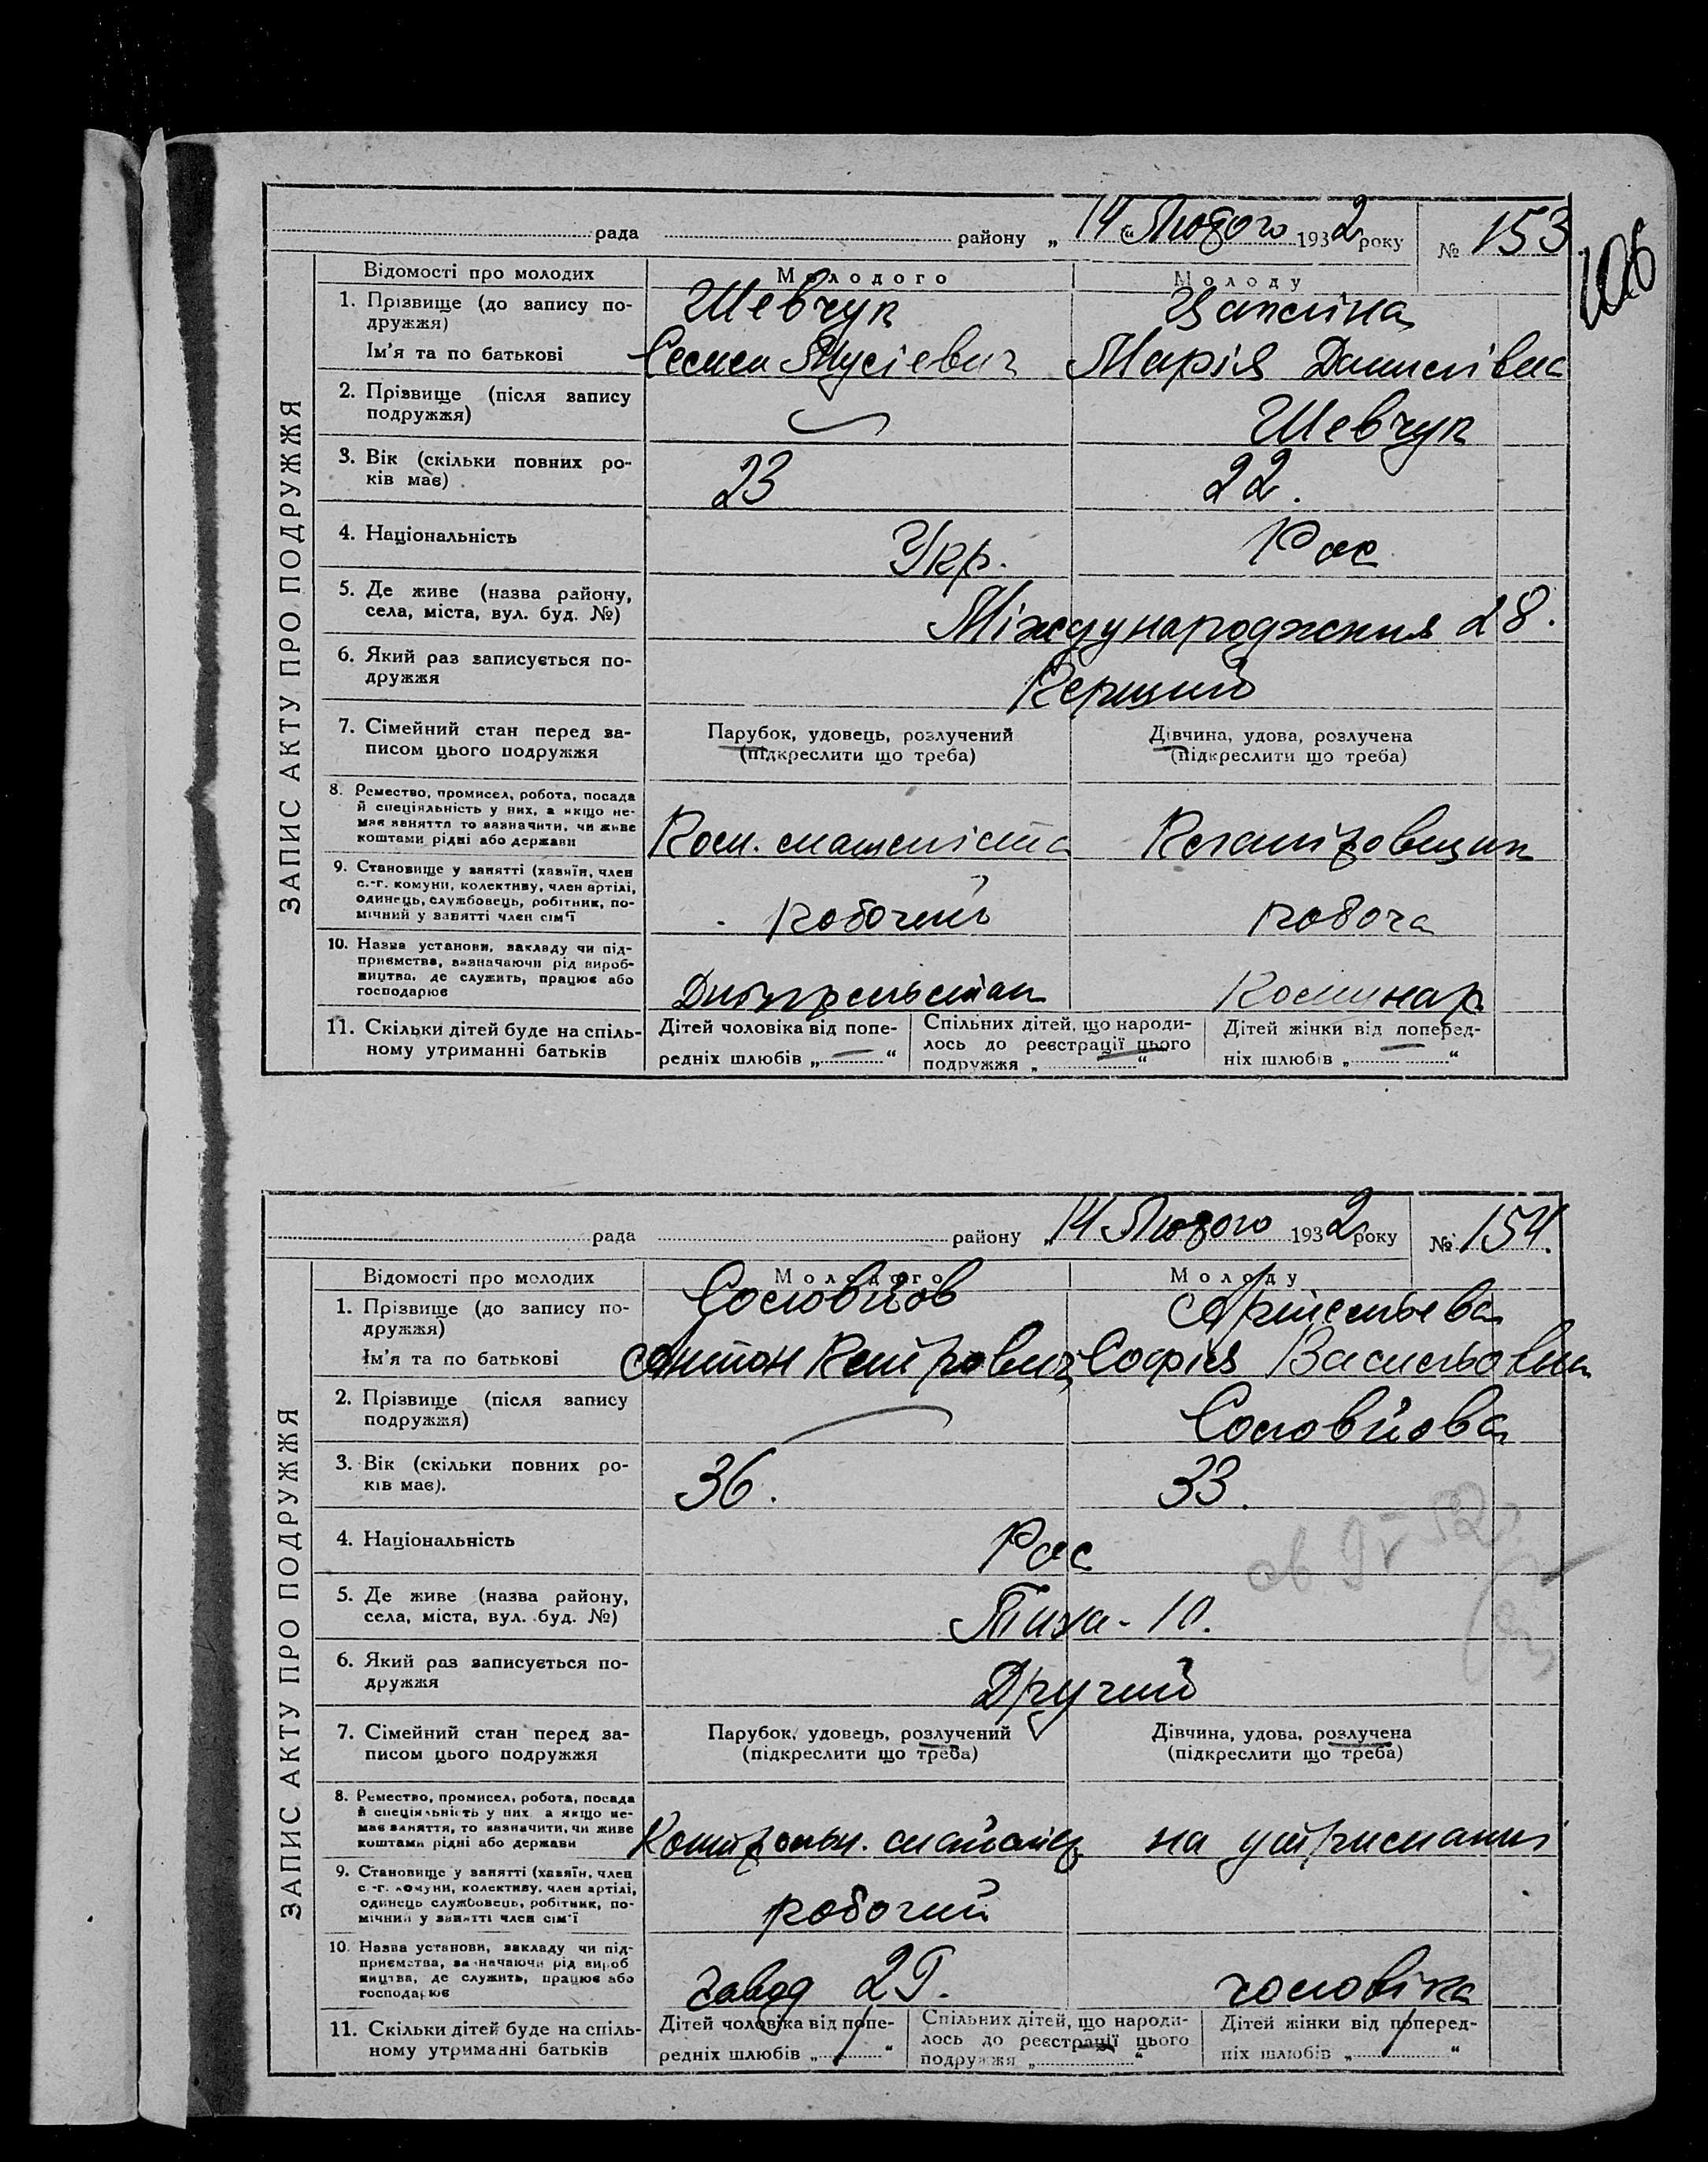 рада района „14“ Лютого 1932 року № 153
106
ЗАПИС АКТУ ПРО ПОДРУЖЖЯ
Відомості про молодих Молодого Молоду
1. Прізвище (до запису по-
дружжя) Шевчук
Ім'я та по батькові Семен Мусієвич Марія Данилівна
2. Прізвище (після запису
подружжя) Шевчук
3. Вік (скільки повних ро-
ків має) 23 22.
4. Національність Укр. Рос
5. Де живе (назва району,
села, міста, вул. буд. №) 28.
6. Який раз записується по-
дружжя Перший
7. Сімейний стан перед за-
писом цього подружжя
Парубок, удовець, розлучений
(підкреслити що треба)
Дівчина, удова, розлучена
(підкреслити що треба)
8. Ремество, промисел, робота, посада
й спеціяльність у них, а якщо не-
має заняття то зазначити, чи живе
коштами рідні або держави
Пом. машиніста
9. Становище у занятті (хазяїн, член
с.-г. комуни, колективу, член артілі,
одинець, службовець, робітник, по-
мічний у занятті член сім'ї
робочий робоча
10. Назва установи, закладу чи під-
приємства, зазначаючи рід вироб-
ництва, де служить, працює або
господарює
Комунар
11. Скільки дітей буде на спіль-
ному утриманні батьків
Дітей чоловіка від попе-
редніх шлюбів „—“
Спільних дітей, що народи-
лось до реєстрації цього
подружжя „—“
Дітей жінки від поперед-
ніх шлюбів „—“
рада району „14 Лютого 1932 року № 154.
ЗАПИС АКТУ ПРО ПОДРУЖЖЯ
Відомості про молодих Молодого Молоду
1. Прізвище (до запису по-
дружжя) Соловйов
Ім'я та по батькові Антон Петрович Софія Васильовна
2. Прізвище (після запису
подружжя) Соловйова
3. Вік (скільки повних ро-
ків має). 36. 33.
4. Національність Рос
5. Де живе (назва району,
села, міста, вул. буд. №) Тиха - 10.
6. Який раз записується по-
дружжя Другий
7. Сімейний стан перед за-
писом цього подружжя
Парубок, удовець, розлучений
(підкреслити що треба)
Дівчина, удова, розлучена
(підкреслити що треба)
8. Ремество, промисел, робота, посада
й спеціяльність у них а якщо не-
має заняття, то зазначити, чи живе
коштами рідні або держави
Контрольн. майстер на утриманні
9. Становище у занятті (хазяїн, член
с.-г. комуни, колективу, член артілі,
одинець службовець, робітник, по-
мічний у занятті член сім'ї
робочий
10. Назва установи, закладу чи під-
приємства, зазначаючи рід вироб
ництва, де служить, працює або
господарює
завод 29. чоловіка
11. Скільки дітей буде на спіль-
ному утриманні батьків
Дітей чоловіка від попе-
редніх шлюбів „1“
Спільних дітей, що народи-
лось до реєстрації цього
подружжя „—“
Дітей жінки від поперед-
ніх шлюбів „1“